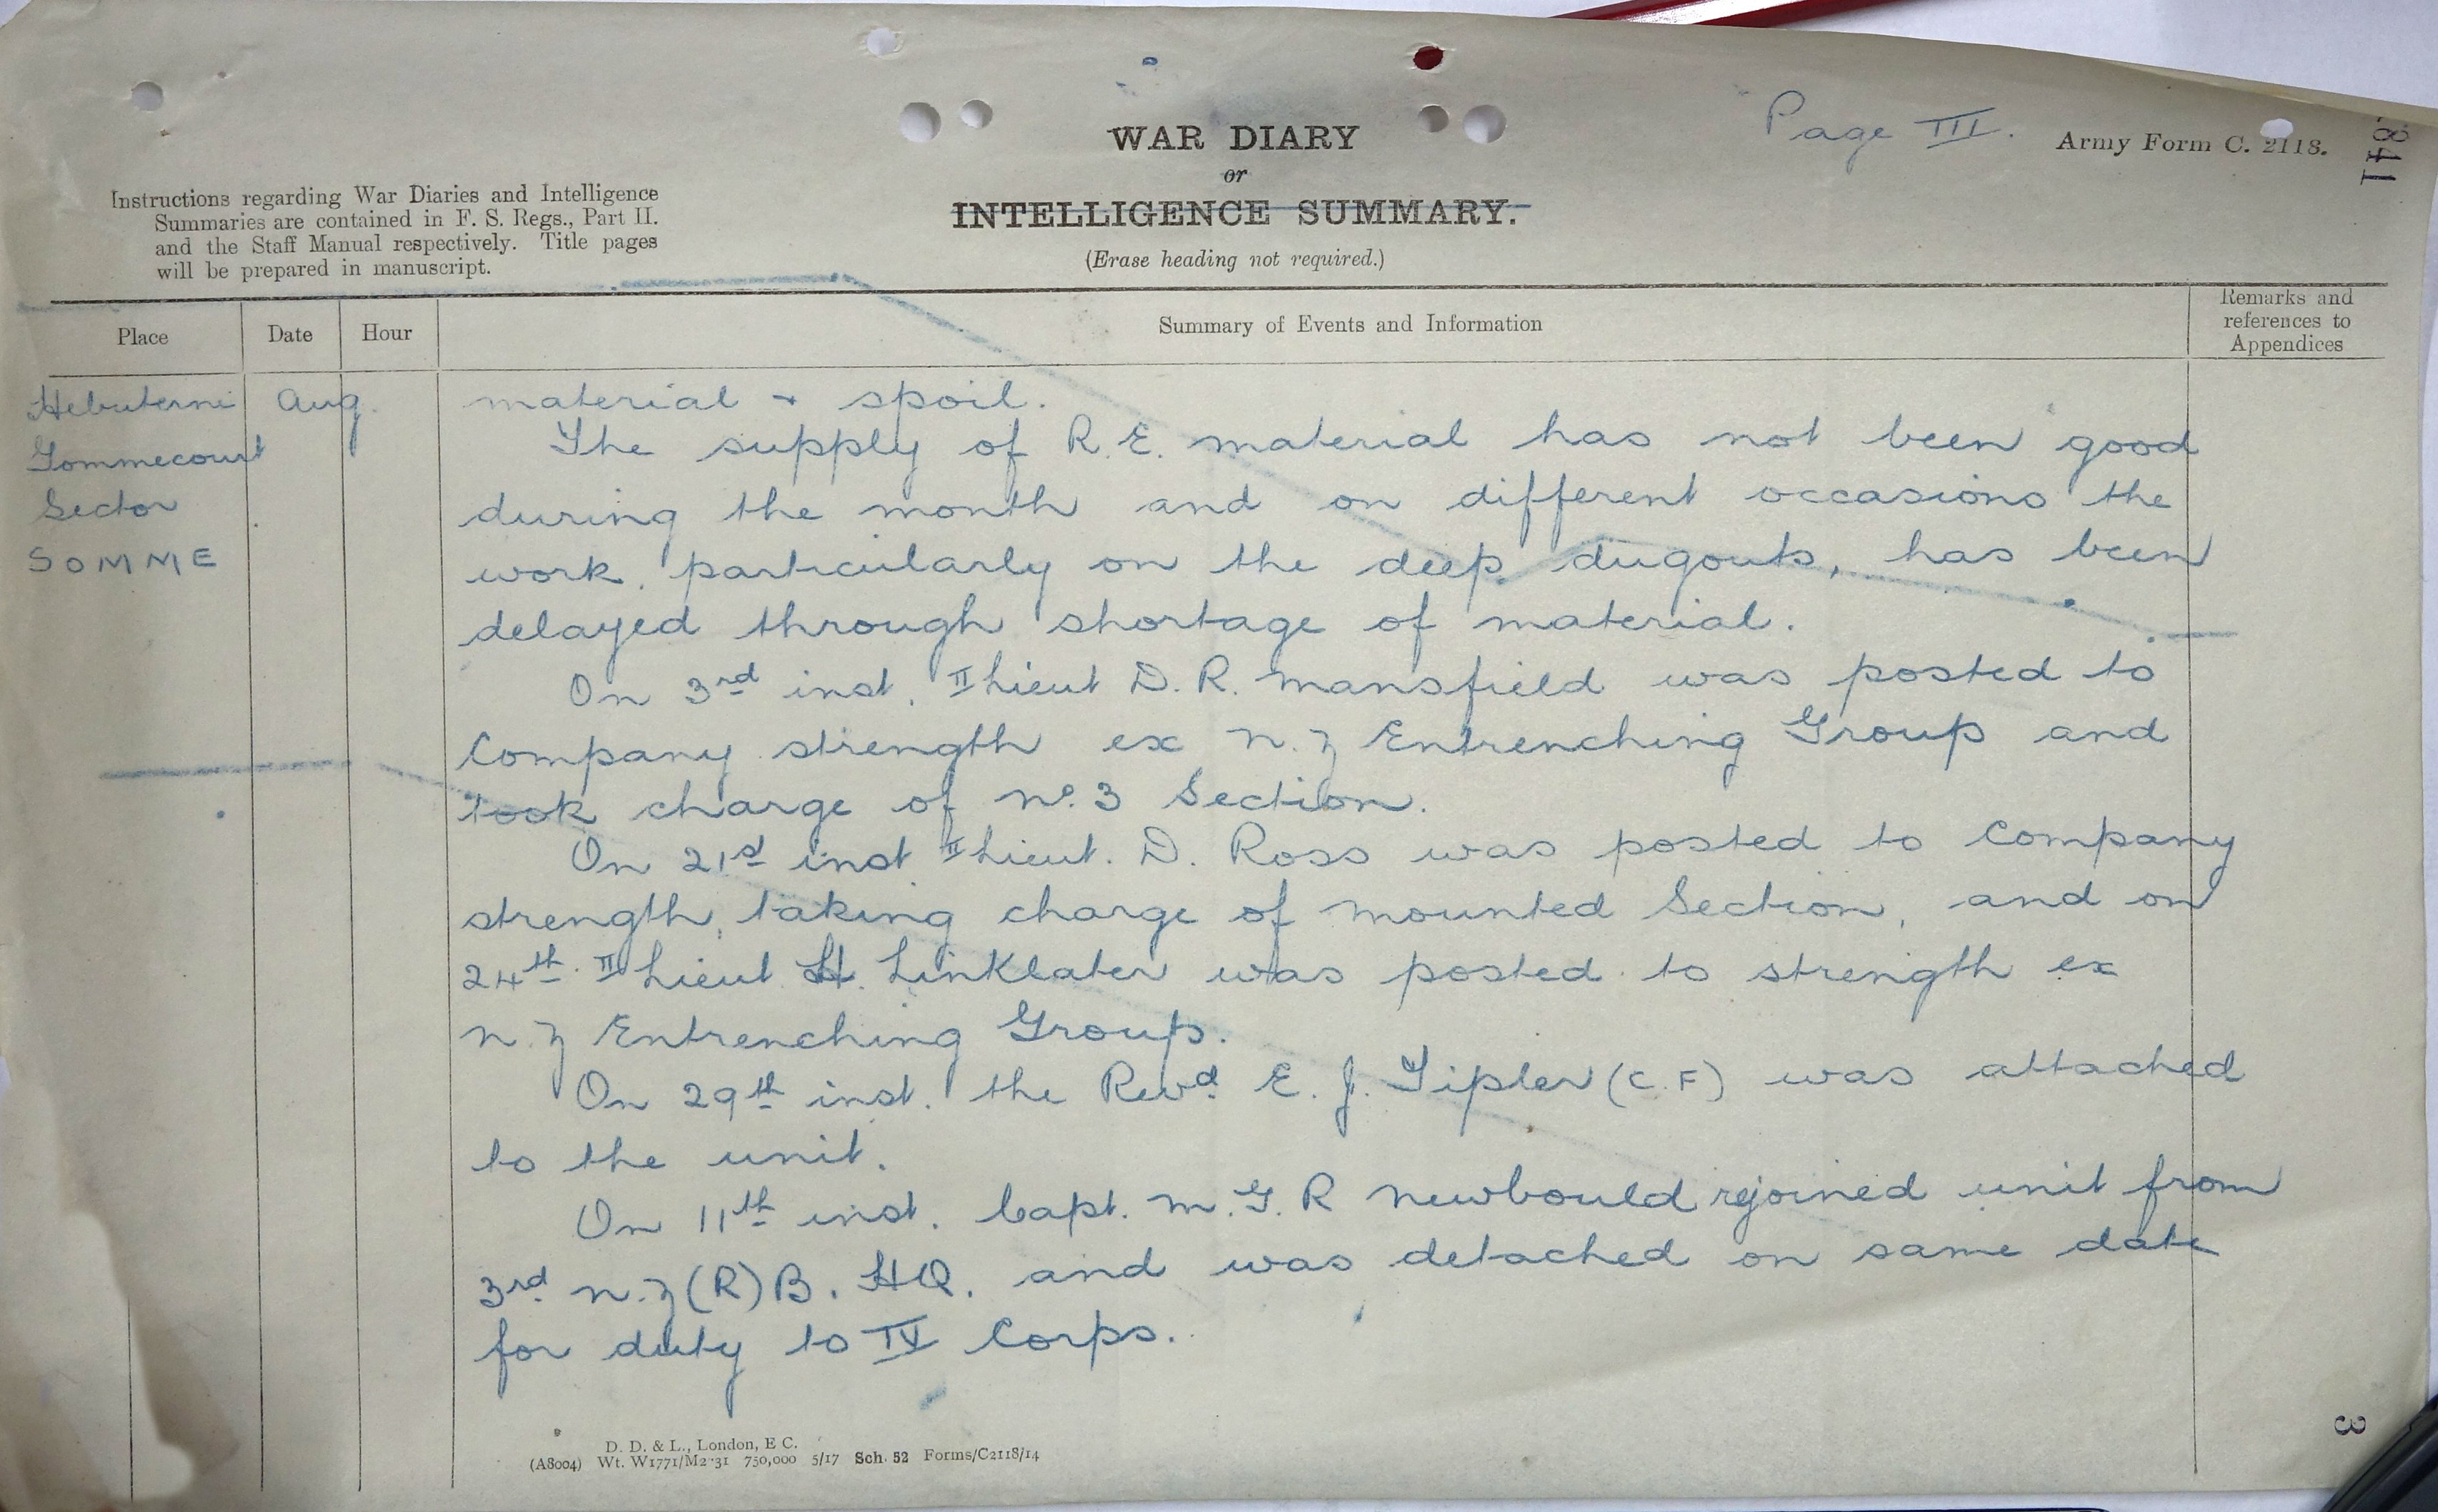 Page III.
Army Form C. 2118.
1148
WAR DIARY
or
INTELLIGENCE SUMMARY.
(Erase heading not required.)
Instructions regarding War Diaries and Intelligence
Summaries are contained in F. S. Regs., Part II.
and the Staff Manual respectively. Title pages
will be prepared in manuscript.
Place
Date
Hour
Summary of Events and Information
Remarks and
references to
Appendices
Hebuterne
Gommecourt
Sector
SOMME
Aug.
material + spoil.
The supply of R.E. material has not been good
during the month and on different occasions the
work, particularly on the deep dugouts, has been
delayed through shortage of material.
On 3rd inst. II Lieut D. R. Mansfield was posted to
Company strength ex N.Z Entrenching Group and
took charge of No. 3 Section.
On 21st inst II Lieut. D. Ross was posted to Company
strength, taking charge of mounted Section, and on
24th. II Lieut H. Linklater was posted to strength ex
N.Z Entrenching Group.
On 29th inst. the Revd. E. J. Tipler (C.F) was attached
to the unit.
On 11th inst. Capt. M. G. R Newbould rejoined unit from
3rd N.Z (R) B. HQ. and was detached on same date
for duty to IV Corps.
D. D. & L., London, E C.
(A8004) Wt. W1771/M2·31 750,000 5/17 Sch. 52 Forms/C2118/14
3